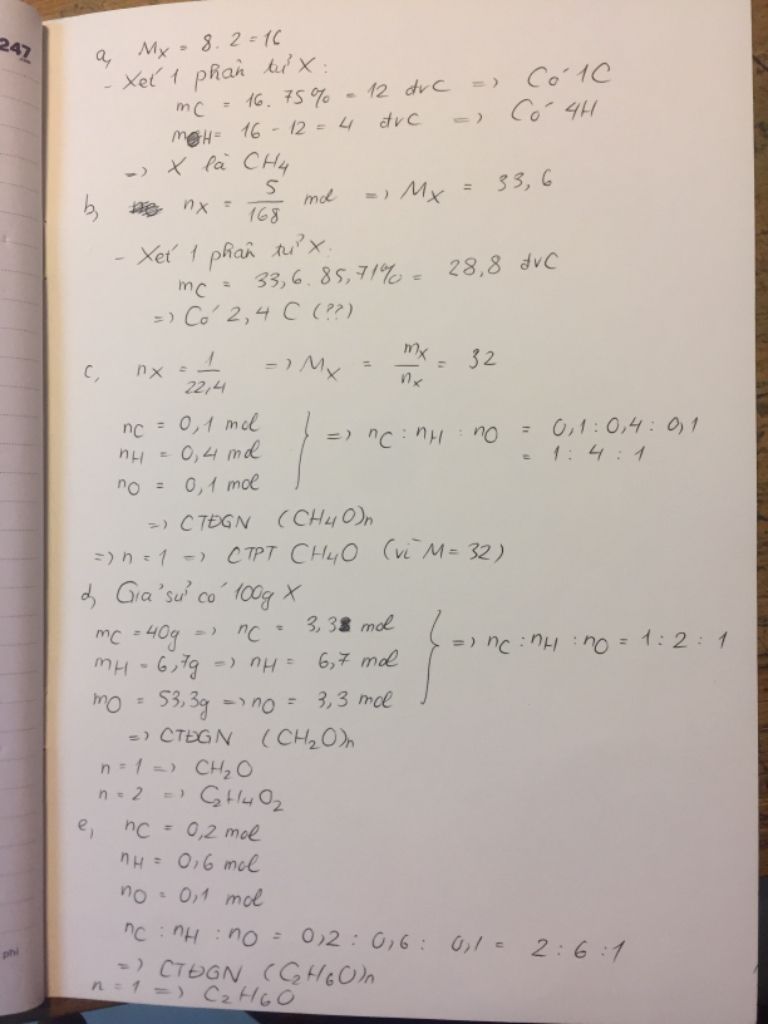 247
a, Mx = 8. 2 = 16
- Xét 1 phân tử X:
mC = 16. 75% = 12 đvC => Có 1C
mH = 16 - 12 = 4 đvC => Có 4H
=> X là CH4
b, nx = 5/168 mol => Mx = 33,6
- Xét 1 phân tử X:
mC = 33,6. 85,71% = 28,8 đvC
=> Có 2,4 C (??)
c, nx = 1/22,4 => Mx = mx/nx = 32
nC = 0,1 mol
nH = 0,4 mol } => nC : nH : nO = 0,1 : 0,4 : 0,1
= 1 : 4 : 1
nO = 0,1 mol
=> CTĐGN (CH4O)n
=> n = 1 => CTPT CH4O (vì M = 32)
d, Giả sử có 100g X
mC = 40g => nC = 3,3 mol
mH = 6,7g => nH = 6,7 mol } => nC : nH : nO = 1 : 2 : 1
mO = 53,3g => nO = 3,3 mol
=> CTĐGN (CH2O)n
n = 1 => CH2O
n = 2 => C2H4O2
e, nC = 0,2 mol
nH = 0,6 mol
nO = 0,1 mol
nC : nH : nO = 0,2 : 0,6 : 0,1 = 2 : 6 : 1
=> CTĐGN (C2H6O)n
n = 1 => C2H6O
phi